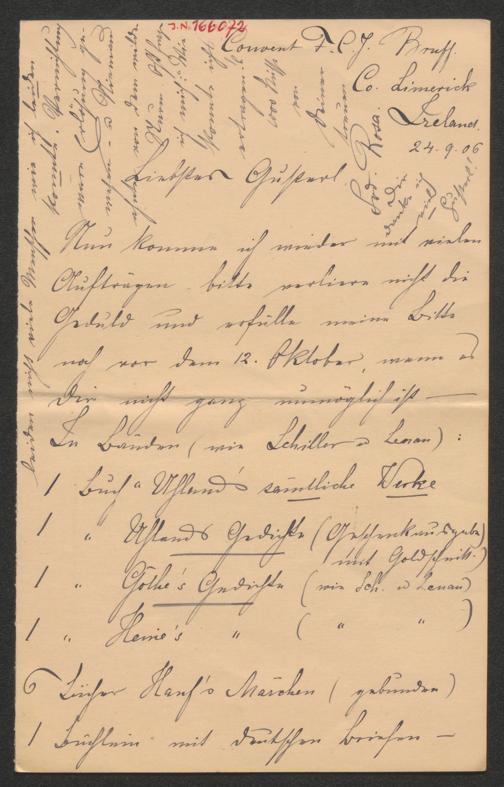 J.N. 166072
Convent F.C.J. Bruff.
Co. Limerick
Ireland.
24.9.06
Liebster Gusterl
Nun komme ich wieder mit vielen
Aufträgen. bitte verliere nicht die
Geduld und erfülle meine Bitte
noch vor dem 12. Oktober, wenn es
Dir nicht ganz unmöglich ist —
In Bänden (wie Schiller u Lenau):
1 Buch " Uhland's sämtliche Werke
1 " Uhlands Gedichte (Geschenkausgabe)
mit Goldschnitt.)
1 " Göthe's Gedichte (wie Sch. u Lenau)
1 " Heine's " ( " " )
6 Bücher Hauf's Märchen (gebunden)
1 Büchlein mit deutschen Briefen —
leiden nicht viele Menschen wie ich leiden
konnte.
wäre Erlösung
Nun
ich mich
konnte ich
ertragen!
100 Küsse
von
Deiner
treuen
Rosa.